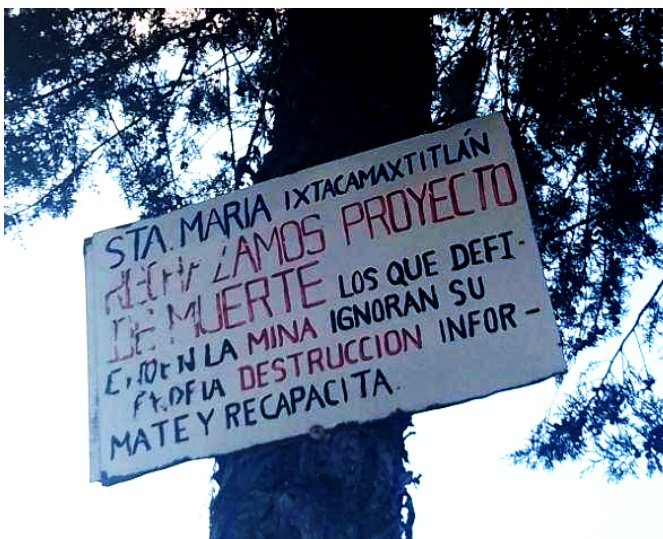 STA. MARIA IXTACAMAXTITLÁN
RECHAZAMOS PROYECTO
DE MUERTE LOS QUE DEFI-
ENDEN LA MINA IGNORAN SU
PROPIA DESTRUCCION INFOR-
MATE Y RECAPACITA.